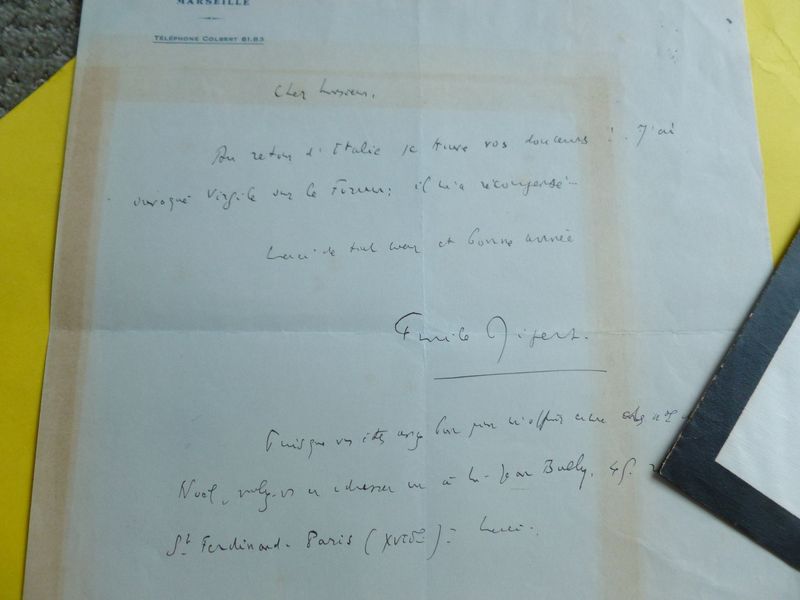 MARSEILLE
TÉLÉPHONE COLBERT 61.83
Cher Monsieur,
Au retour d'Italie je trouve vos douceurs ! J'ai
invoqué Virgile sur le Forum; il m'a récompensé
Merci de tout cœur et bonne année
Emile Ripert.
Puisque vous êtes assez bon pour m'offrir
Noël, en adresser un à M. Jean Bally, 45.
St Ferdinand. Paris (XVIIe) Merci.